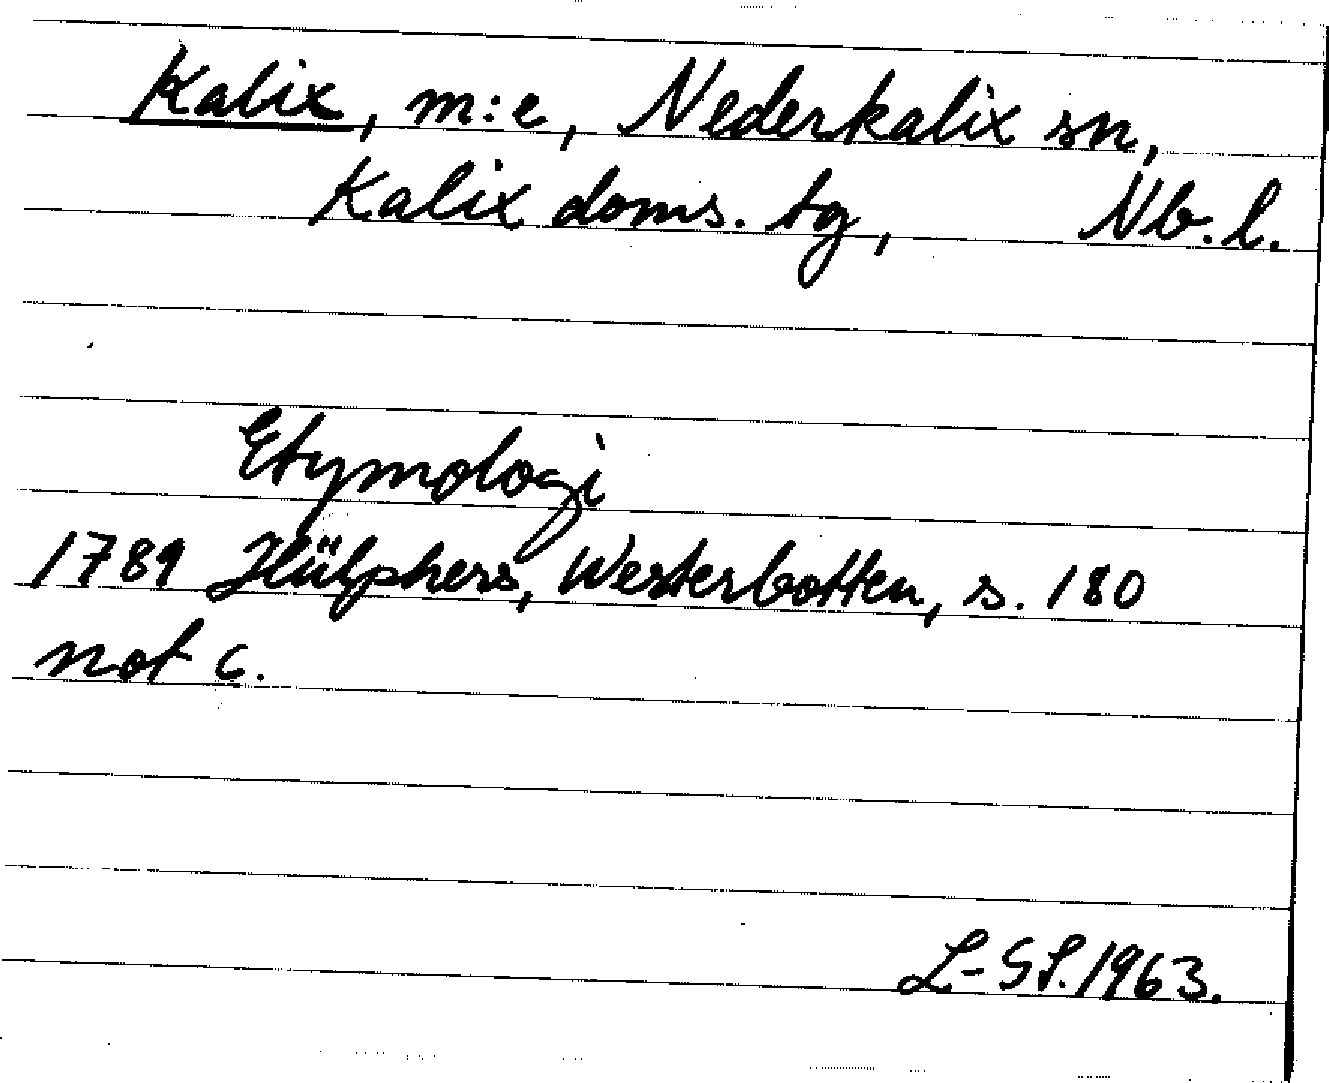 Kalix, m:e, Nederkalix sn,
Kalix doms. tg, Nb. l.
Etymologi
1789 Hülphers, Westerbotten, s. 180
not c.
L-SP. 1963.